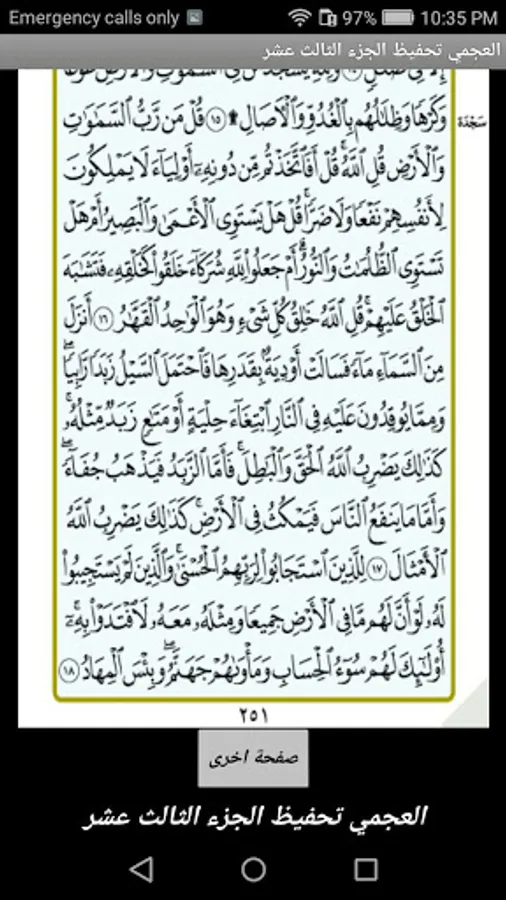 Emergency calls only 97% 10:35 PM
العجمي تحفيظ الجزء الثالث عشر
وَكَرْهًا وَظِلَالُهُم بِالْغُدُوِّ وَالْآصَالِ ۩ ١٥ قُلْ مَن رَّبُّ السَّمَاوَاتِ
سَجْدَة
وَالْأَرْضِ قُلِ اللَّهُ قُلْ أَفَاتَّخَذْتُم مِّن دُونِهِ أَوْلِيَاءَ لَا يَمْلِكُونَ
لِأَنفُسِهِمْ نَفْعًا وَلَا ضَرًّا قُلْ هَلْ يَسْتَوِي الْأَعْمَىٰ وَالْبَصِيرُ أَمْ هَلْ
تَسْتَوِي الظُّلُمَاتُ وَالنُّورُ أَمْ جَعَلُوا لِلَّهِ شُرَكَاءَ خَلَقُوا كَخَلْقِهِ فَتَشَابَهَ
الْخَلْقُ عَلَيْهِمْ قُلِ اللَّهُ خَالِقُ كُلِّ شَيْءٍ وَهُوَ الْوَاحِدُ الْقَهَّارُ ١٦ أَنزَلَ
مِنَ السَّمَاءِ مَاءً فَسَالَتْ أَوْدِيَةٌ بِقَدَرِهَا فَاحْتَمَلَ السَّيْلُ زَبَدًا رَّابِيًا
وَمِمَّا يُوقِدُونَ عَلَيْهِ فِي النَّارِ ابْتِغَاءَ حِلْيَةٍ أَوْ مَتَاعٍ زَبَدٌ مِّثْلُهُ
كَذَٰلِكَ يَضْرِبُ اللَّهُ الْحَقَّ وَالْبَاطِلَ فَأَمَّا الزَّبَدُ فَيَذْهَبُ جُفَاءً
وَأَمَّا مَا يَنفَعُ النَّاسَ فَيَمْكُثُ فِي الْأَرْضِ كَذَٰلِكَ يَضْرِبُ اللَّهُ
الْأَمْثَالَ ١٧ لِلَّذِينَ اسْتَجَابُوا لِرَبِّهِمُ الْحُسْنَىٰ وَالَّذِينَ لَمْ يَسْتَجِيبُوا
لَهُ لَوْ أَنَّ لَهُم مَّا فِي الْأَرْضِ جَمِيعًا وَمِثْلَهُ مَعَهُ لَافْتَدَوْا بِهِ
أُولَٰئِكَ لَهُمْ سُوءُ الْحِسَابِ وَمَأْوَاهُمْ جَهَنَّمُ وَبِئْسَ الْمِهَادُ ١٨
٢٥١
صفحة اخرى
العجمي تحفيظ الجزء الثالث عشر